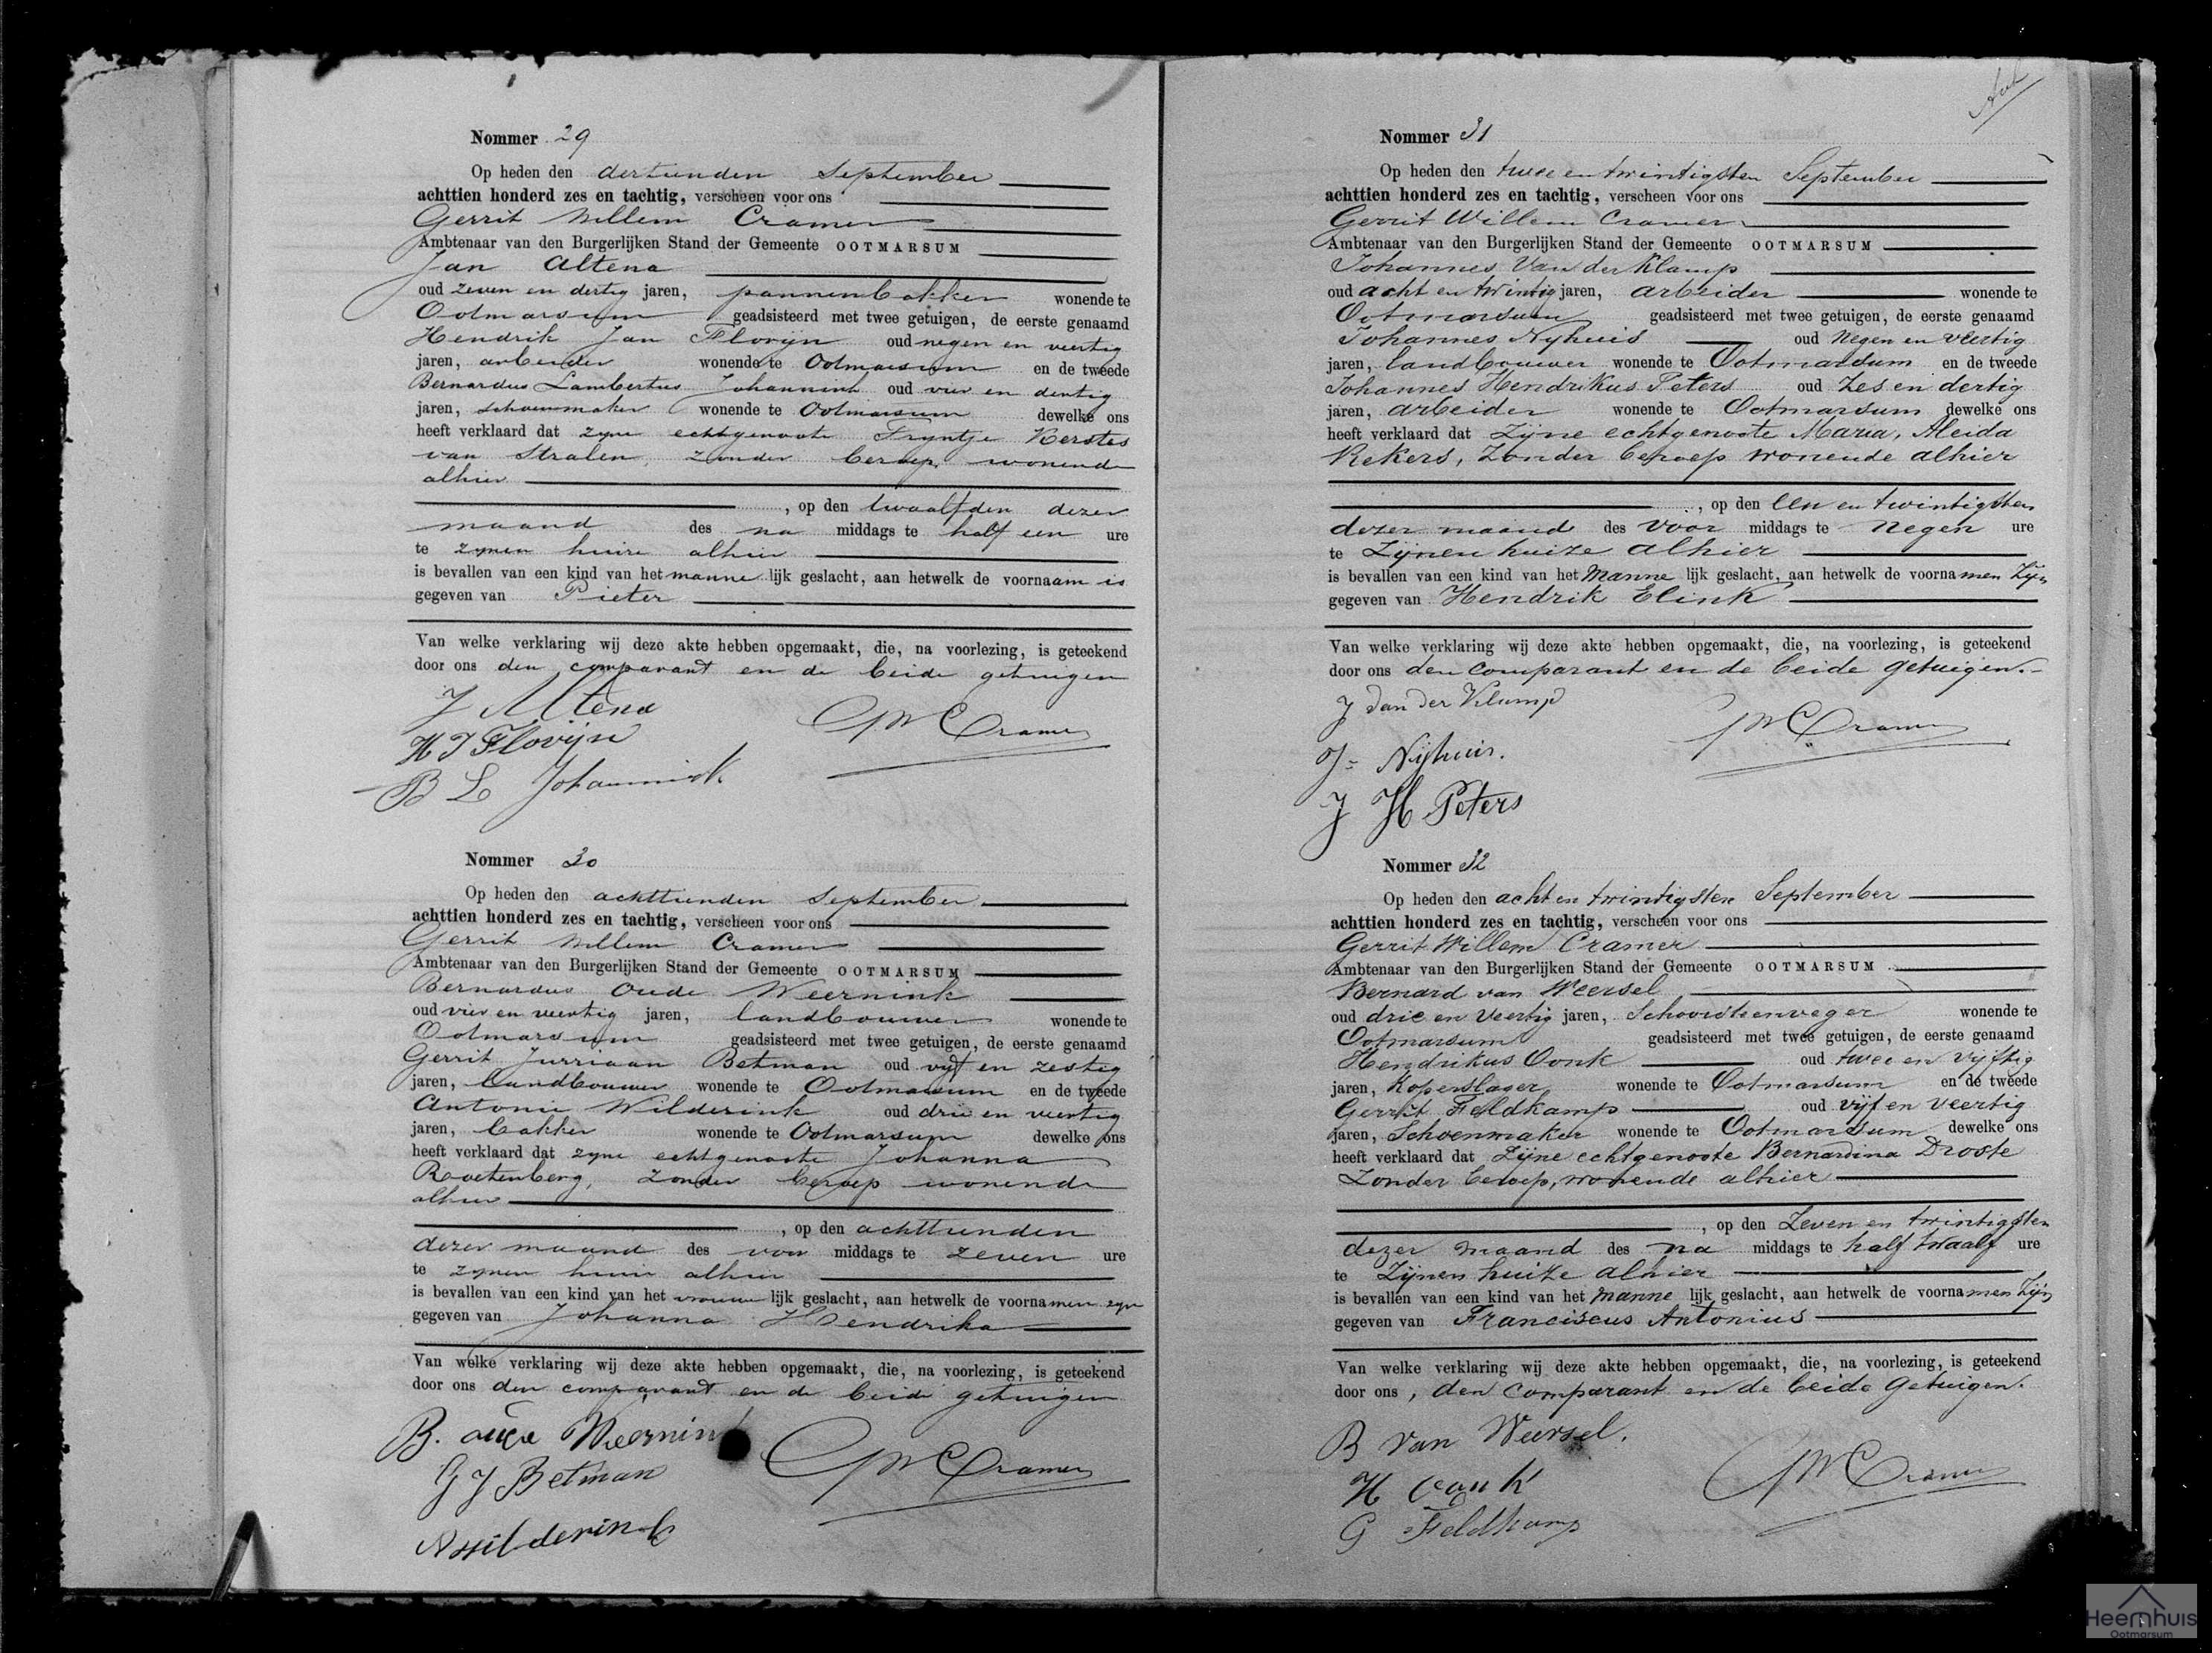 Nommer 29
Op heden den dertienden September
achttien honderd zes en tachtig, verscheen voor ons
Gerrit Willem Cramer
Ambtenaar van den Burgerlijken Stand der Gemeente OOTMARSUM
Jan Altena
oud zeven en dertig jaren, pannenbakker wonende te
Ootmarsum geadsisteerd met twee getuigen, de eerste genaamd
Hendrik Jan Florijn oud negen en veertig
jaren, arbeider wonende te Ootmarsum en de tweede
Bernardus Lambertus Johannink oud vier en dertig
jaren, schoenmaker wonende te Ootmarsum dewelke ons
heeft verklaard dat zyne echtgenoote Tryntje Kerstes
van Stralen, zonder beroep, wonende
alhier
, op den twaalfden dezer
maand des na middags te half een ure
te zynen huize alhier
is bevallen van een kind van het manne lijk geslacht, aan hetwelk de voornaam is
gegeven van Pieter
Van welke verklaring wij deze akte hebben opgemaakt, die, na voorlezing, is geteekend
door ons den comparant en de beide getuigen
J Altena
GW Cramer
H J Florijn
B L Johannink
Nommer 30
Op heden den achttienden September
achttien honderd zes en tachtig, verscheen voor ons
Gerrit Willem Cramer
Ambtenaar van den Burgerlijken Stand der Gemeente OOTMARSUM
Bernardus Oude Weernink
oud vier en veertig jaren, landbouwer wonende te
Ootmarsum geadsisteerd met twee getuigen, de eerste genaamd
Gerrit Jurriaan Betman oud vijf en zestig
jaren, landbouwer wonende te Ootmarsum en de tweede
Antonie Wilderink oud drie en veertig
jaren, bakker wonende te Ootmarsum dewelke ons
heeft verklaard dat zyne echtgenoote Johanna
Roetenberg, zonder beroep wonende
alhier
, op den achttienden
dezer maand des voor middags te zeven ure
te zynen huize alhier
is bevallen van een kind van het vrouwe lijk geslacht, aan hetwelk de voornamen zyn
gegeven van Johanna Hendrika
Van welke verklaring wij deze akte hebben opgemaakt, die, na voorlezing, is geteekend
door ons den comparant en de beide getuigen
B. oude Weernink
GW Cramer
G J Betman
A Wilderink
Nommer 31
Op heden den twee en twintigsten September
achttien honderd zes en tachtig, verscheen voor ons
Gerrit Willem Cramer
Ambtenaar van den Burgerlijken Stand der Gemeente OOTMARSUM
Johannes Van der Klamp
oud acht en twintig jaren, arbeider wonende te
Ootmarsum geadsisteerd met twee getuigen, de eerste genaamd
Johannes Nyhuis oud Negen en veertig
jaren, landbouwer wonende te Ootmarsum en de tweede
Johannes Hendrikus Peters oud Zes en dertig
jaren, arbeider wonende te Ootmarsum dewelke ons
heeft verklaard dat Zijne echtgenoote Maria, Aleida
Rekers, Zonder beroep wonende alhier
, op den een en twintigsten
dezer maand des voor middags te negen ure
te Zijnen huize alhier
is bevallen van een kind van het Manne lijk geslacht, aan hetwelk de voornamen Zijn
gegeven van Hendrik Elink
Van welke verklaring wij deze akte hebben opgemaakt, die, na voorlezing, is geteekend
door ons den comparant en de beide getuigen.
J van der Klump
GW Cramer
J= Nijhuis.
J H Peters
Nommer 32
Op heden den acht en twintigsten September
achttien honderd zes en tachtig, verscheen voor ons
Gerrit Willem Cramer
Ambtenaar van den Burgerlijken Stand der Gemeente OOTMARSUM
Bernard van Weersel
oud drie en Veertig jaren, Schoorsteenveger wonende te
Ootmarsum geadsisteerd met twee getuigen, de eerste genaamd
Hendrikus Oonk oud twee en vijftig
jaren, Koperslager wonende te Ootmarsum en de tweede
Gerrit Feldkamp oud vijf en Veertig
jaren, Schoenmaker wonende te Ootmarsum dewelke ons
heeft verklaard dat Zijne echtgenoote Bernardina Droste
Zonder beroep, wonende alhier
, op den Zeven en twintigsten
dezer maand des na middags te half twaalf ure
te Zijnen huize alhier
is bevallen van een kind van het manne lijk geslacht, aan hetwelk de voornamen Zijn
gegeven van Franciscus Antonius
Van welke verklaring wij deze akte hebben opgemaakt, die, na voorlezing, is geteekend
door ons, den comparant en de beide getuigen.
B van Weersel.
GW Cramer
H Oonk
G Feldkamp
Heemhuis
Ootmarsum